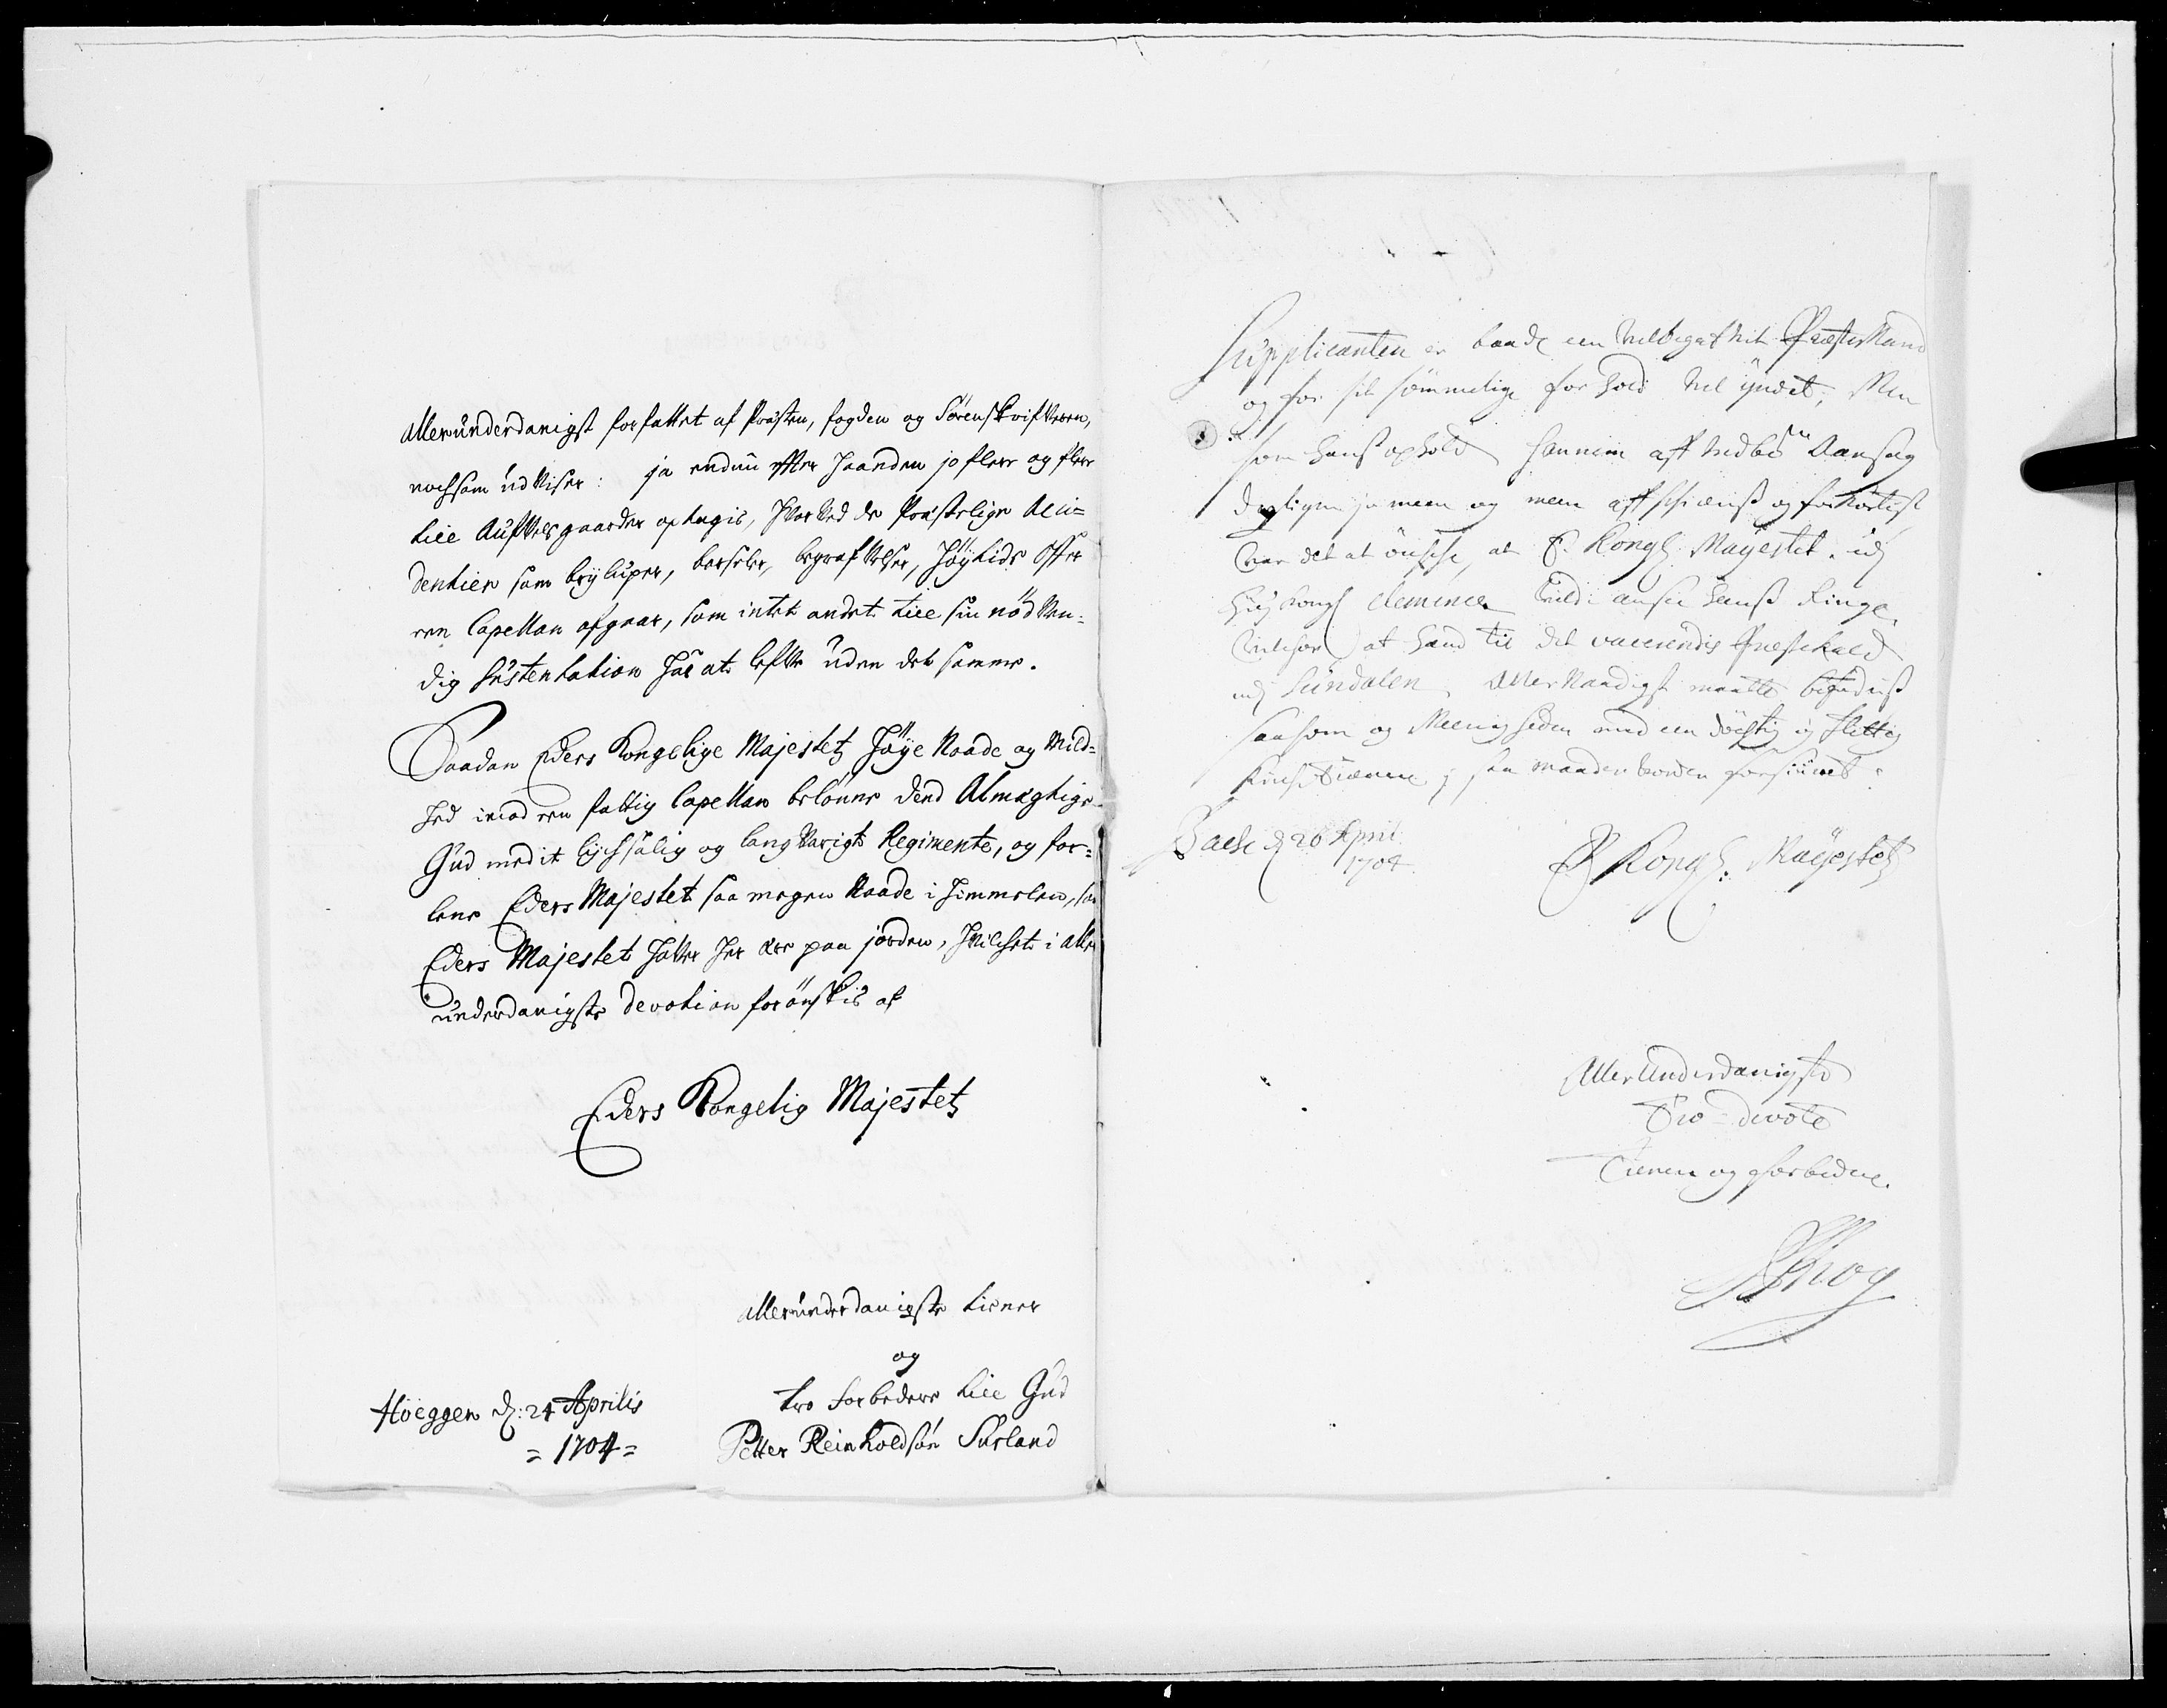 allerunderdanigst forfattet af Præsten, fogden og Sorenskrifveren,
nochsom udviser: ja endnu effter haanden jo flere og flere
till Aufvels gaarder optagis, hvor ved de Præstelige Acci=
dentier som brÿluper, barseler, begrafvelser, Høytids offer
een Capellan afgaar, som intet andet till sin nødven=
dig sustentation har at lefve uden det samme.
Saadan Eders Kongelige Majestetz høye Naade og Mild=
hed imod een fattig Capellan belønne dend Almægtige
Gud med it lychsalig og langvarigt Regimente, og for=
lene Eders Majestet saa megen Naade i himmelen, som
Eders Majestet hafver her ære paa jorden, hvilchet i aller
underdanigste devotion forønskis af
Eders Kongelig Majestetz
allerunderdanigste tiener
og
tro forbedere till Gud
Petter Reinholdsøn Surland
Höeggen d: 24 Aprilis
= 1704 =
Supplicanten er baade een velbegafvet Præstemand
og for sit sømmelige forhold vel yndet; Men
som hans ophold hannem aff
dagligen jo meer og meer aff og forkortist
var det at ønsche, at E. Kongl: Mayestet udj
høy Kongl clemence milde ansee hans ringe
at hand til det vacerende Præstekald
udj Sundalen Allernaadigst maatte
saasom og Meenigheden med een døchtig og flittig
tienere saa maader vorden forsiunet.
d 26 April
1704
E Kongl: Mayestetz
Allerunderdanigste
Tro-devote
Tiener og forbedere